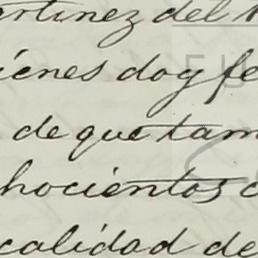 artinez del
ienes doy fe
de que tam
hocientos c
calidad de